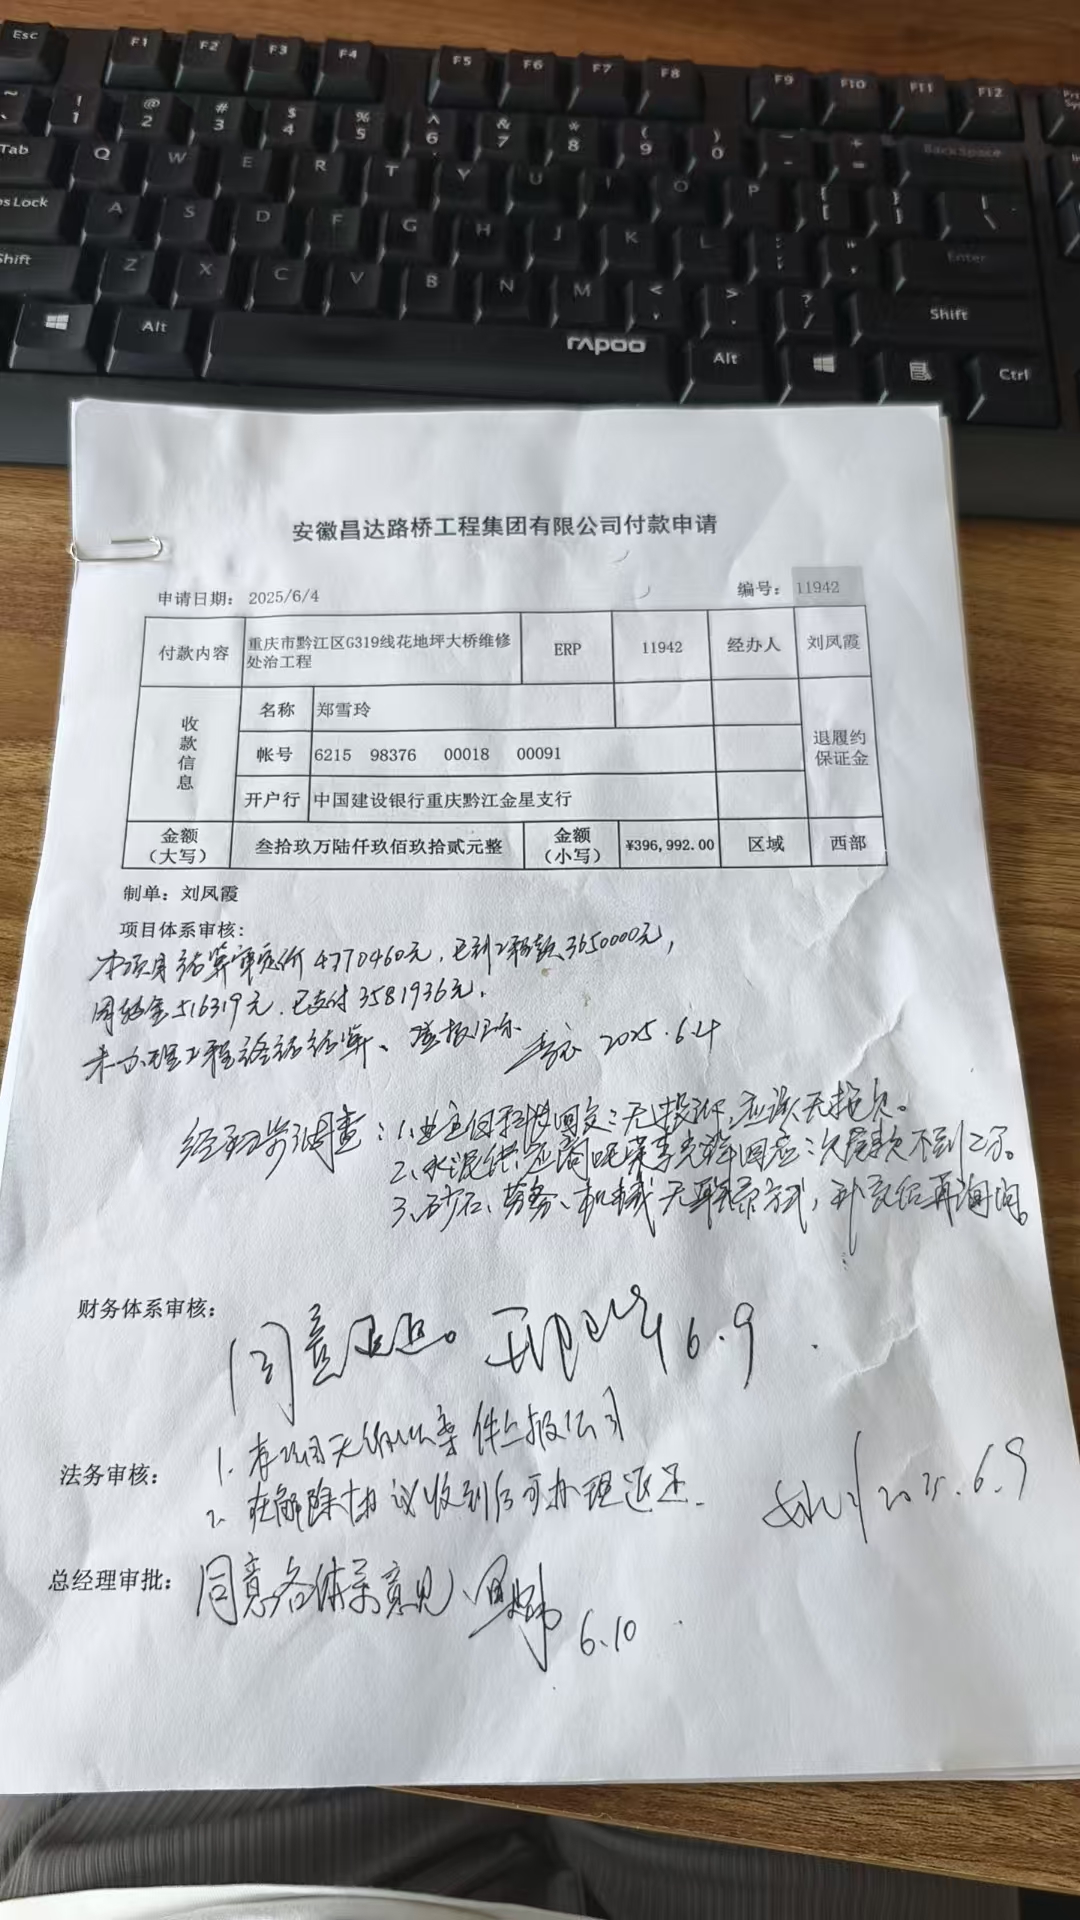 Esc F1 F2 F3 F4 F5 F6 F7 F8 F9 F10 F11 F12
~ ! 1 @ 2 # 3 $ 4 % 5 ^ 6 & 7 * 8 ( 9 ) 0 _ - + = BackSpace
Tab Q W E R T Y U I O P { [ } ] | \
A S D F G H J K L : ; " ' Enter
Shift Z X C V B N M < , > . ? / Shift
Alt rapoo Alt Ctrl
安徽昌达路桥工程集团有限公司付款申请
申请日期: 2025/6/4 编号: 11942
付款内容 重庆市黔江区G319线花地坪大桥维修处治工程 ERP 11942 经办人 刘凤霞
收款信息 名称 郑雪玲 退履约保证金
帐号 6215 98376 00018 00091
开户行 中国建设银行重庆黔江金星支行
金额(大写) 叁拾玖万陆仟玖佰玖拾贰元整 金额(小写) ¥396,992.00 区域 西部
制单: 刘凤霞
项目体系审核:
本项目结算审定价4770460元,已到工程款3650000元,
周转金516319元,已支付3581936元,
未办理工程 结算、 2025.6.4
经 调查:1、业主 回交:无投诉,应该无拖欠。
2、水泥供应商 回应:欠 款不到2万。
3、砂石、劳务、机械无联系方式, 再询问。
财务体系审核:
同意 6.9
法务审核:
1. 无 案件上报公司
2. 在解除协议收到后可办理退还. 2025.6.9
总经理审批: 同意各体系意见、 6.10